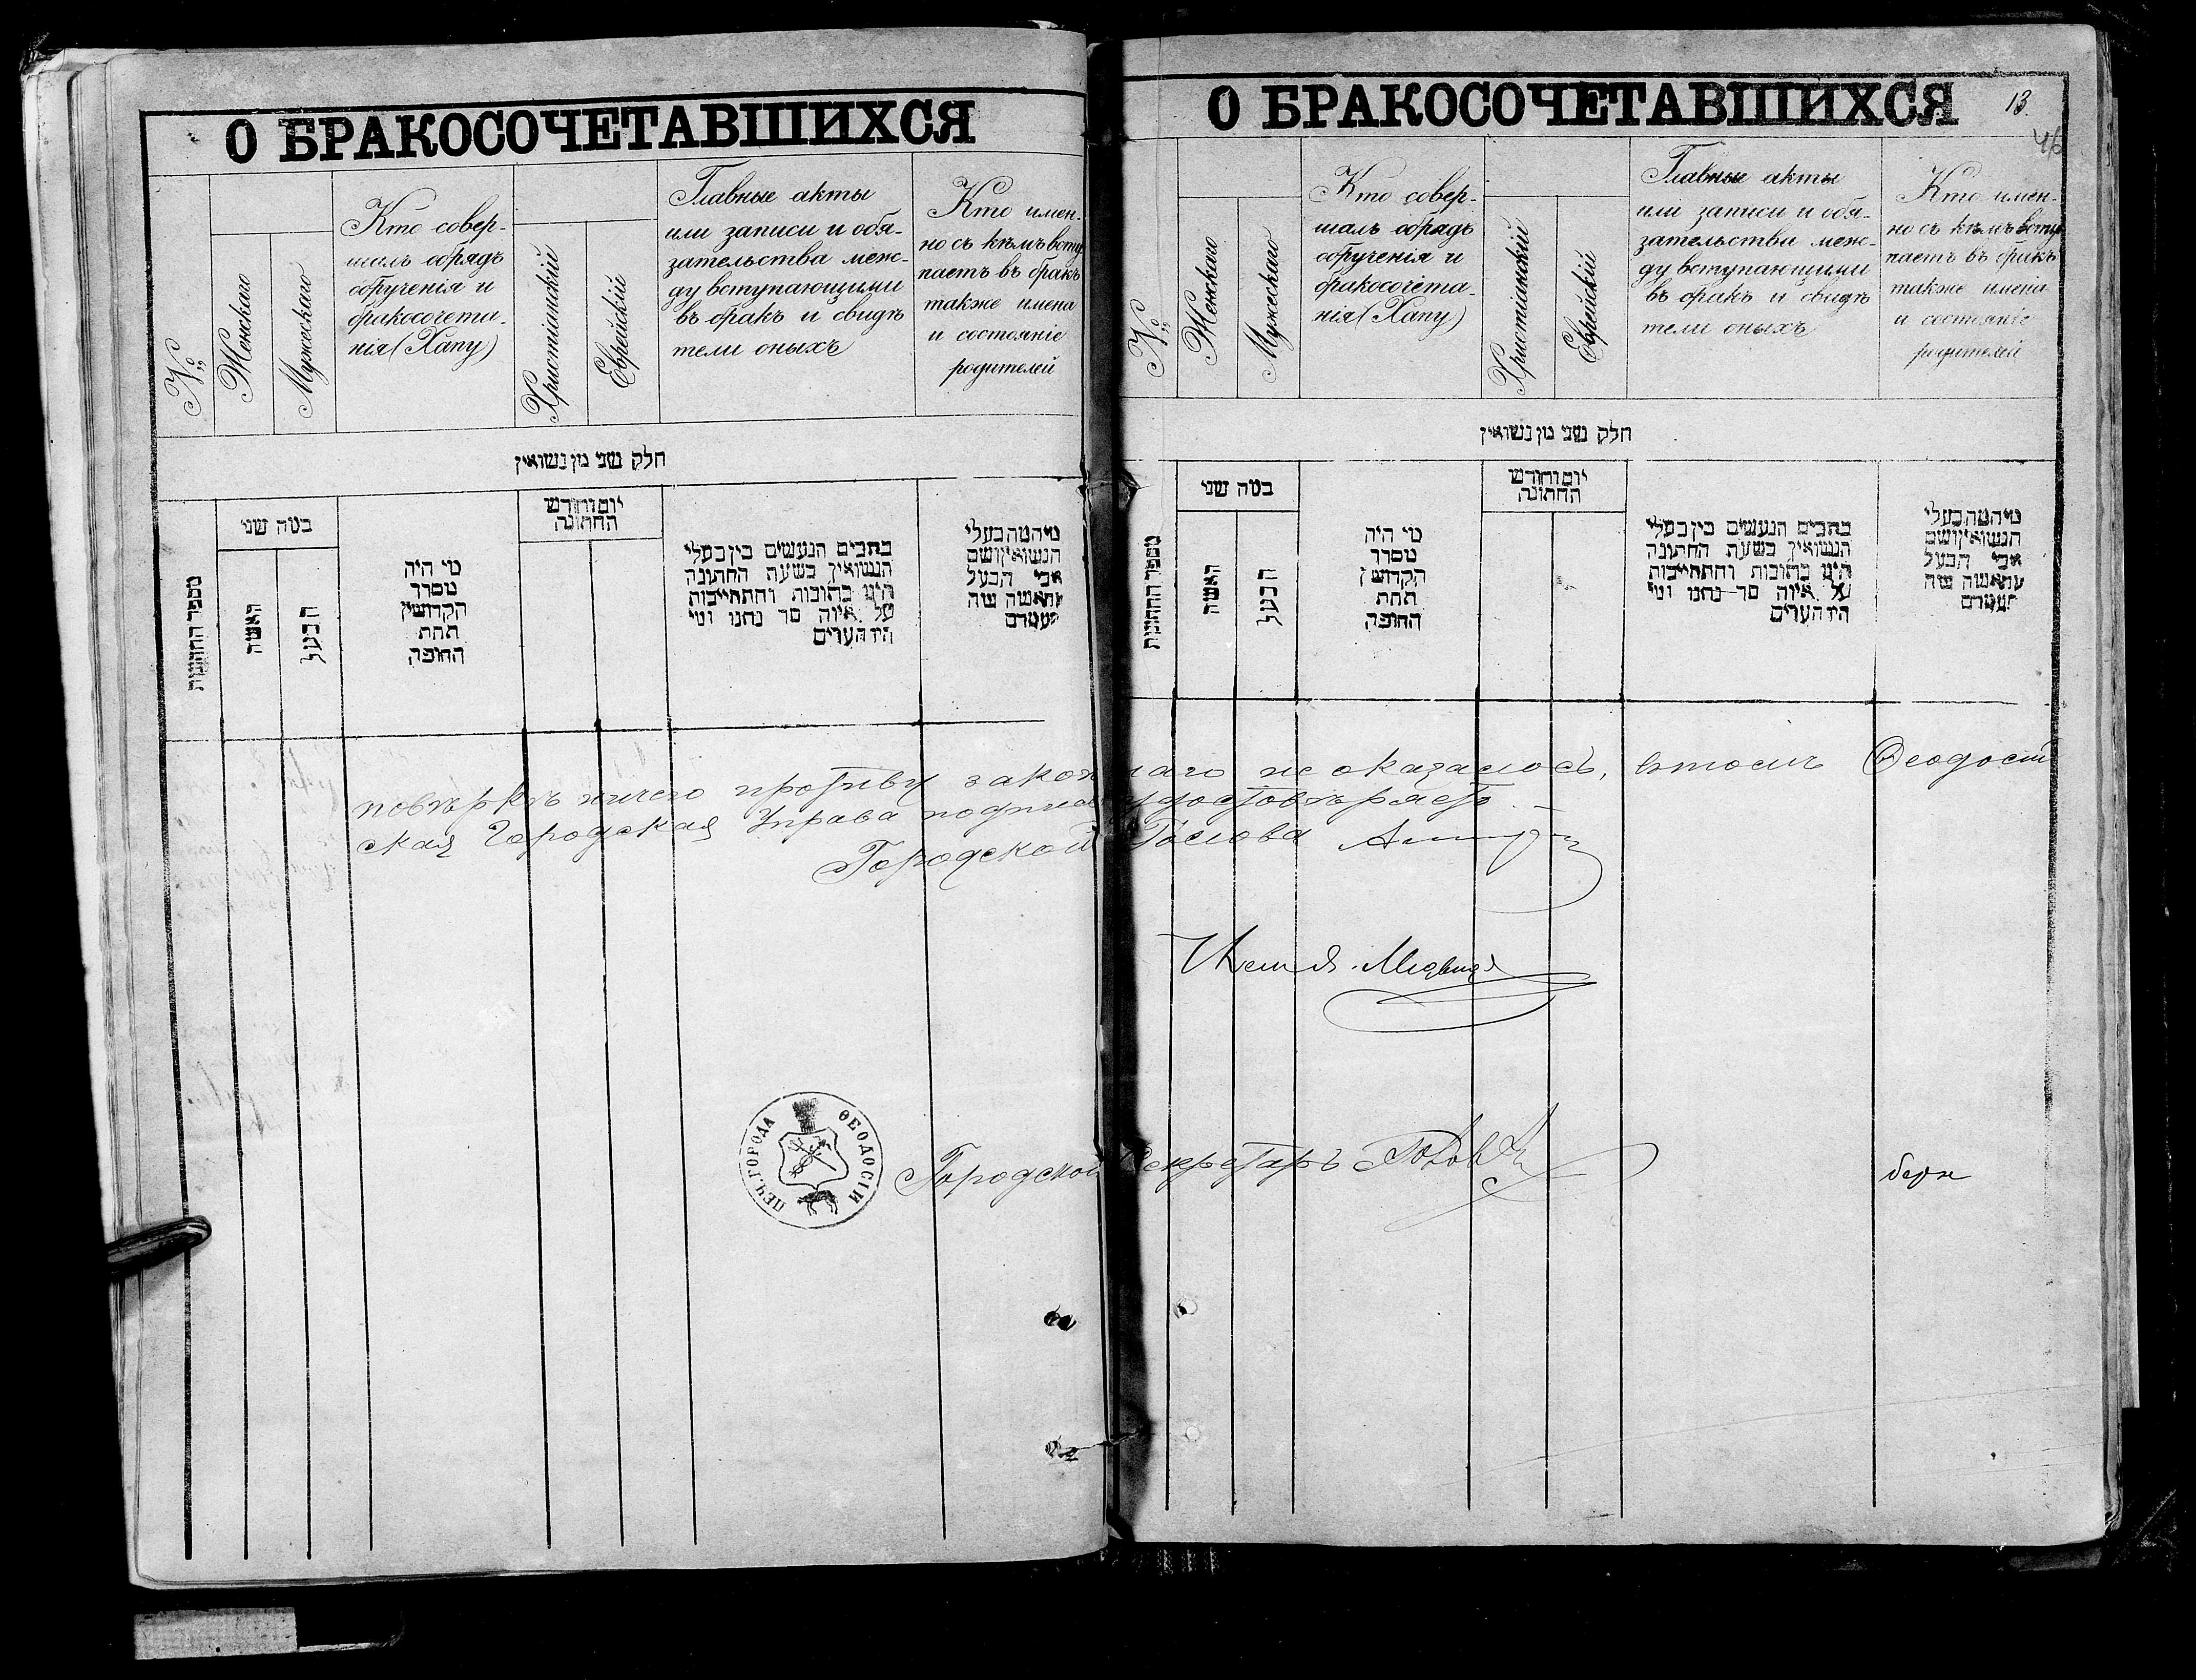 О БРАКОСОЧЕТАВШИХСЯ
№
Женскаго
Мужескаго
Кто совер-
шалъ обрядъ
обрученія и
бракосочета-
нія (Хапу)
Христіанскій
Еврейскій
Главные акты
или записи и обя-
зательства меж-
ду вступающими
въ бракъ и свидѣ
тели оныхъ
Кто имен-
но съ кѣмъ всту
паетъ въ бракъ
также имена
и состояніе
родителей
חלק שני מן נשואין
מספר החתונות
כמה שני
האשה
הבעל
מי היה
מסדר
הקדושין
תחת
החופה
יום וחודש
החתונה
כתבים הנעשים בין בעלי
הנשואין בשעת החתונה
היינו כתובות והתחייבות
על איזה סך נתנו ומי
היו העדים
מי המה בעלי
הנשואין ושם
אבי הבעל
О БРАКОСОЧЕТАВШИХСЯ
13
46
№
Женскаго
Мужескаго
Кто совер-
шалъ обрядъ
обрученія и
бракосочета-
нія (Хапу)
Христіанскій
Еврейскій
Главные акты
или записи и обя-
зательства меж-
ду вступающими
въ бракъ и свидѣ
тели оныхъ
Кто имен-
но съ кѣмъ всту
паетъ въ бракъ
также имена
и состояніе
родителей
חלק שני מן נשואין
מספר החתונות
כמה שני
האשה
הבעל
מי היה
מסדר
הקדושין
תחת
החופה
יום וחודש
החתונה
כתבים הנעשים בין בעלי
הנשואין בשעת החתונה
היינו כתובות והתחייבות
על איזה סך נתנו ומי
היו העדים
מי המה בעלי
הנשואין ושם
אבי הבעל
повѣркѣ ничего противу законнаго не оказалось, въ томъ Ѳеодосій
ская Городская Управа удостовѣряетъ.
Городской Голова
Городской Секретарь
ПЕЧ. ГОРОДА ѲЕОДОСІИ